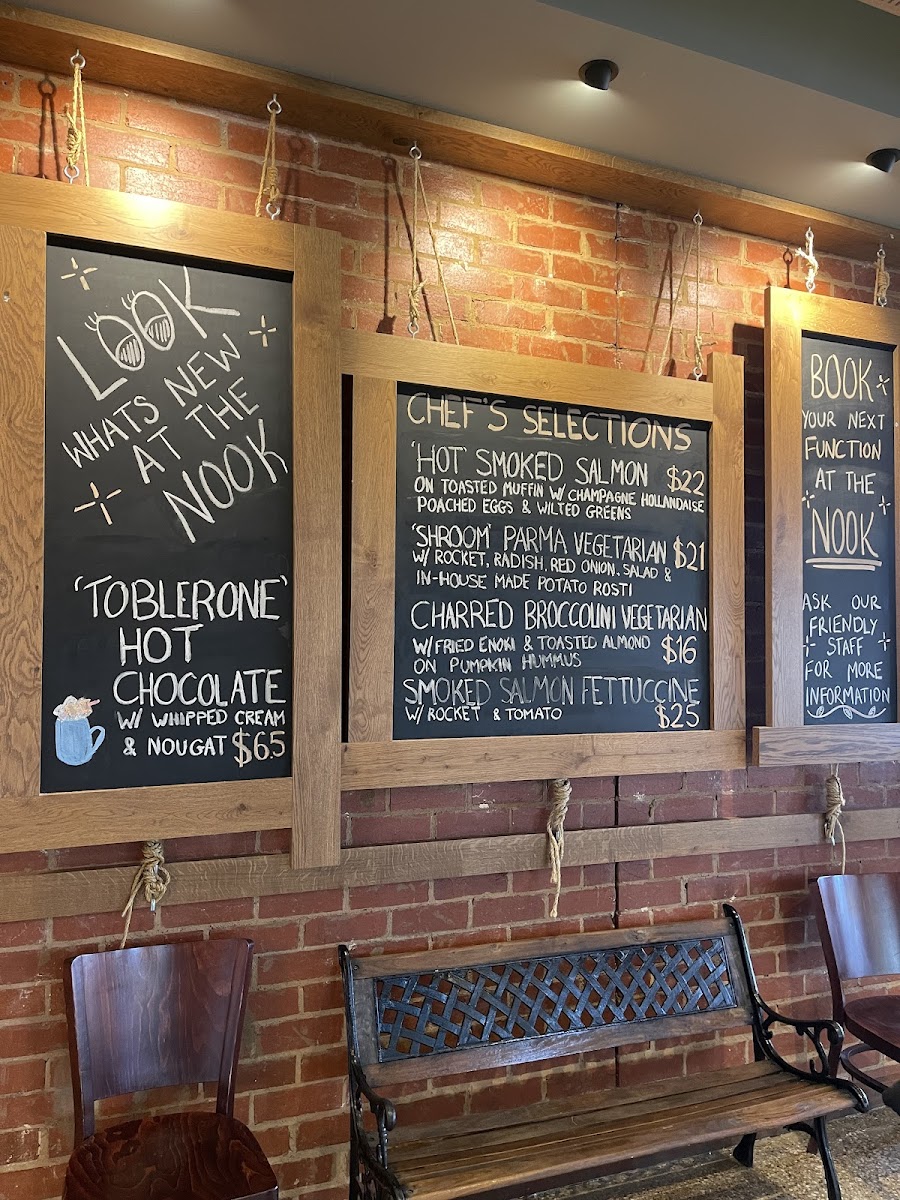 LOOK
WHATS NEW
AT THE
NOOK
'TOBLERONE'
HOT
CHOCOLATE
W/ WHIPPED CREAM
& NOUGAT $6.5
CHEF'S SELECTIONS
'HOT' SMOKED SALMON $22
ON TOASTED MUFFIN W/ CHAMPAGNE HOLLANDAISE
POACHED EGGS & WILTED GREENS
'SHROOM' PARMA VEGETARIAN $21
W/ ROCKET, RADISH, RED ONION, SALAD &
IN-HOUSE MADE POTATO ROSTI
CHARRED BROCCOLINI VEGETARIAN
W/ FRIED ENOKI & TOASTED ALMOND $16
ON PUMPKIN HUMMUS
SMOKED SALMON FETTUCCINE
W/ ROCKET & TOMATO $25
BOOK
YOUR NEXT
FUNCTION
AT THE
NOOK
ASK OUR
FRIENDLY
STAFF
FOR MORE
INFORMATION